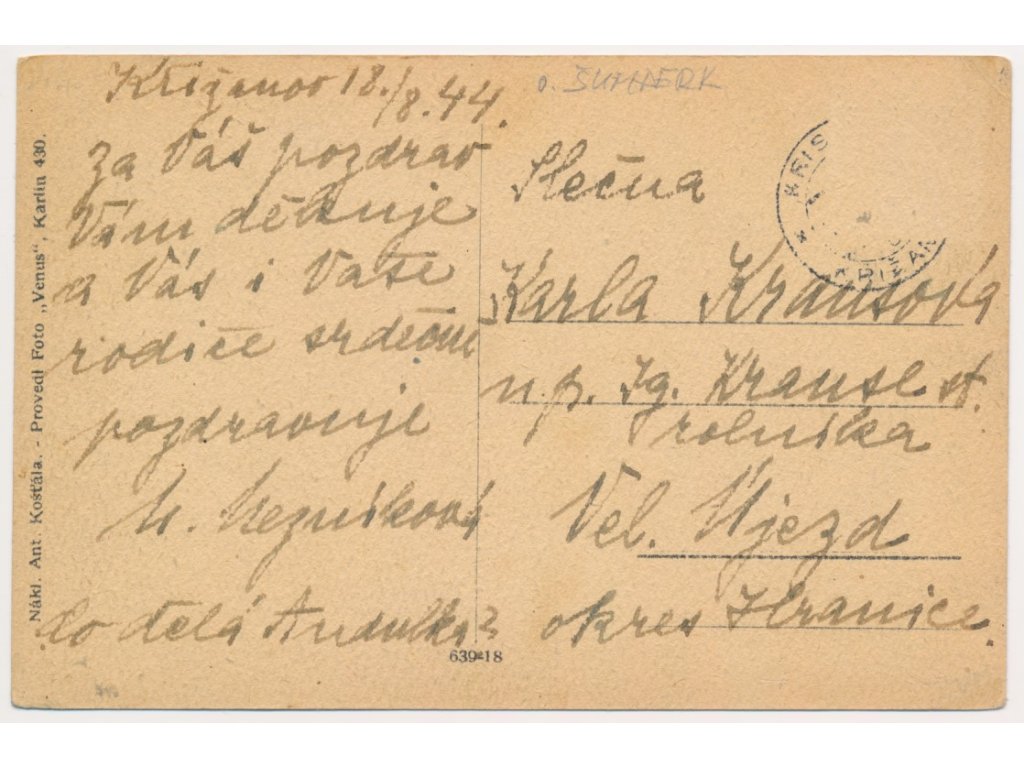 Křižanov 18./8. 44.
za Váš pozdrav
Vám děkuje
a Vás i Vaše
rodiče srdečně
pozdravuje
M. Mezníková
Co dělá Andulka?
o. ŠUMPERK
Slečna
Karla Krausová
n. p. Ig. Krause st.
rolníka
Vel. Újezd
okres Hranice.
KRIS
KRIŽAN
Nákl. Ant. Košťála. - Provedl Foto „Venus“, Karlín 430.
639-18